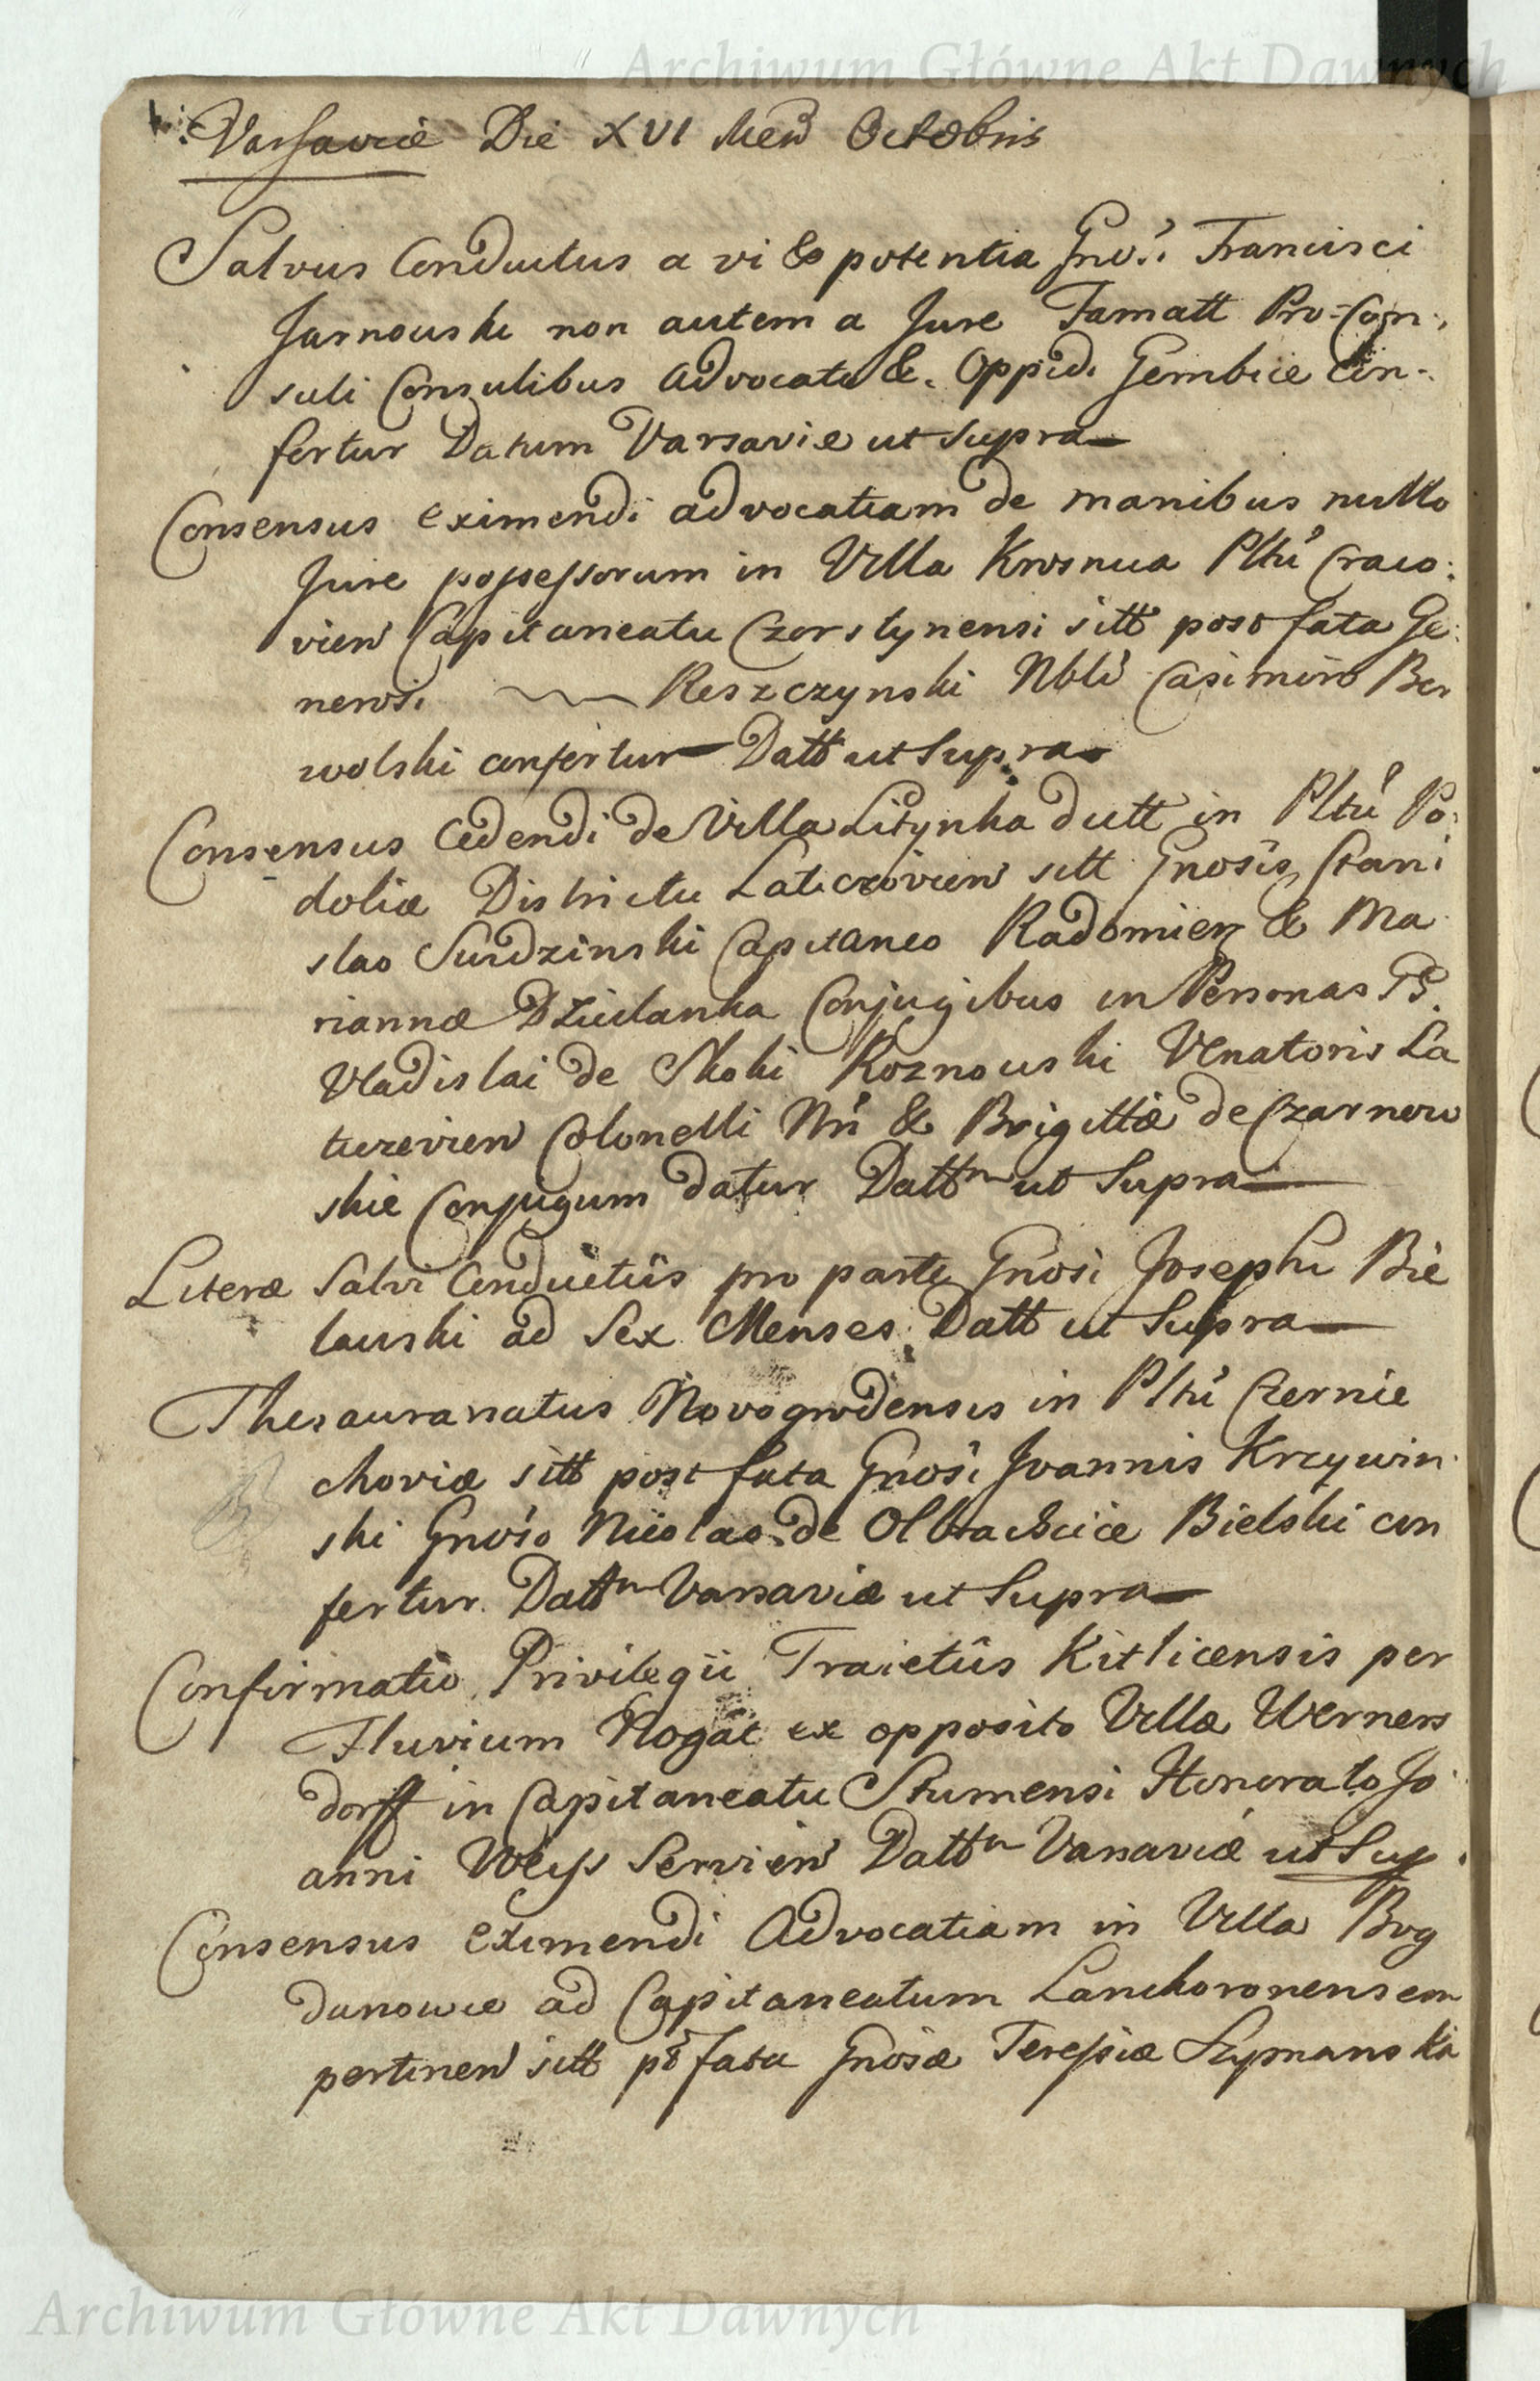 Archiwum Główne Akt Dawnych
Varsaviæ Die XVI Men̄ Octobris
Salvus Conductus a vi & potentia Gnosi Francisci
Jarnowski non autem a Jure Famatt Pro-Con:
suli Consulibus Advocato &. Oppidi Gembice Con-
fertur Datum Varsaviæ ut Supra
Consensus eximendi advocatiam de manibus nullo
Jure possessorum in Villa Krosnica Pltu Craco:
vien Capitaneatu Czorstynensi sitt post fata Ge:
nerosi Reszczynski Nbli Casimiro Ber
wolski confertur Datt ut Supra
Consensus Cedendi de Villa Litynka dutt in Pltu Po:
doliæ Districtu Laticzovien sitt Gnosis Stani
slao Suidzinski Capitaneo Radomien & Ma
riannæ Dziulanka Conjugibus in Personas
Vladislai de Skoki Roznowski Venatoris La
ticzevien Colonelli Nri & Brigittæ de Czarnow
skie Conjugum datur Dattm ut Supra
Literæ Salvi Conductûs pro parte Gnosi Josephi Bie
lawski ad Sex Menses Datt ut Supra
Thesauranatus Novogrodensis in Pltu Czernie
choviæ sitt post fata Gnosi Joannis Krzywin
ski Gnoso Nicolao de Olbrachcice Bielski con
fertur Dattm Varsaviæ ut Supra
Confirmatio Privilegii Traiectûs Kitlicensis per
Fluvium Nogat ex opposito Villæ Werners
dorff in Capitaneatu Stumensi Honorato Jo
anni Weiss Servien Dattm Varsaviæ ut Sup.
Consensus eximendi Advocatiam in Villa Bog
danowie ad Capitaneatum Lanckoronensem
pertinen sitt pt fata Gnosæ Teressiæ Szymanska
Archiwum Główne Akt Dawnych